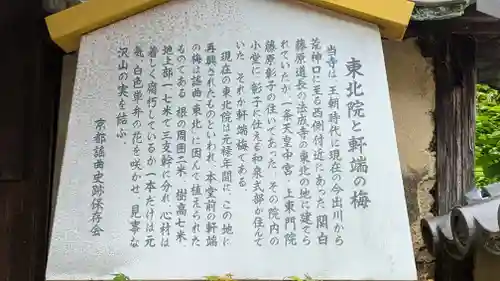 東北院と軒端の梅
当寺は、王朝時代に現在の今出川から
荒神口に至る西側付近にあった、関白
藤原道長の法成寺の東北の地に建てら
れていたが、一条天皇中宮、上東門院
藤原彰子の住いであった。その院内の
小堂に、彰子に仕える和泉式部が住んで
いた。それが軒端梅である。
現在の東北院は元禄年間に、この地に
再興されたものといわれ、本堂前の軒端
の梅は謡曲「東北」に因んで植えられた
ものである。根の周囲二米、樹高七米、
地上部一・七米で三支幹に分れ、心材は
著しく腐朽しているが一本だけは元
気。白色単弁の花を咲かせ、見事な
沢山の実を結ぶ。
京都謡曲史跡保存会